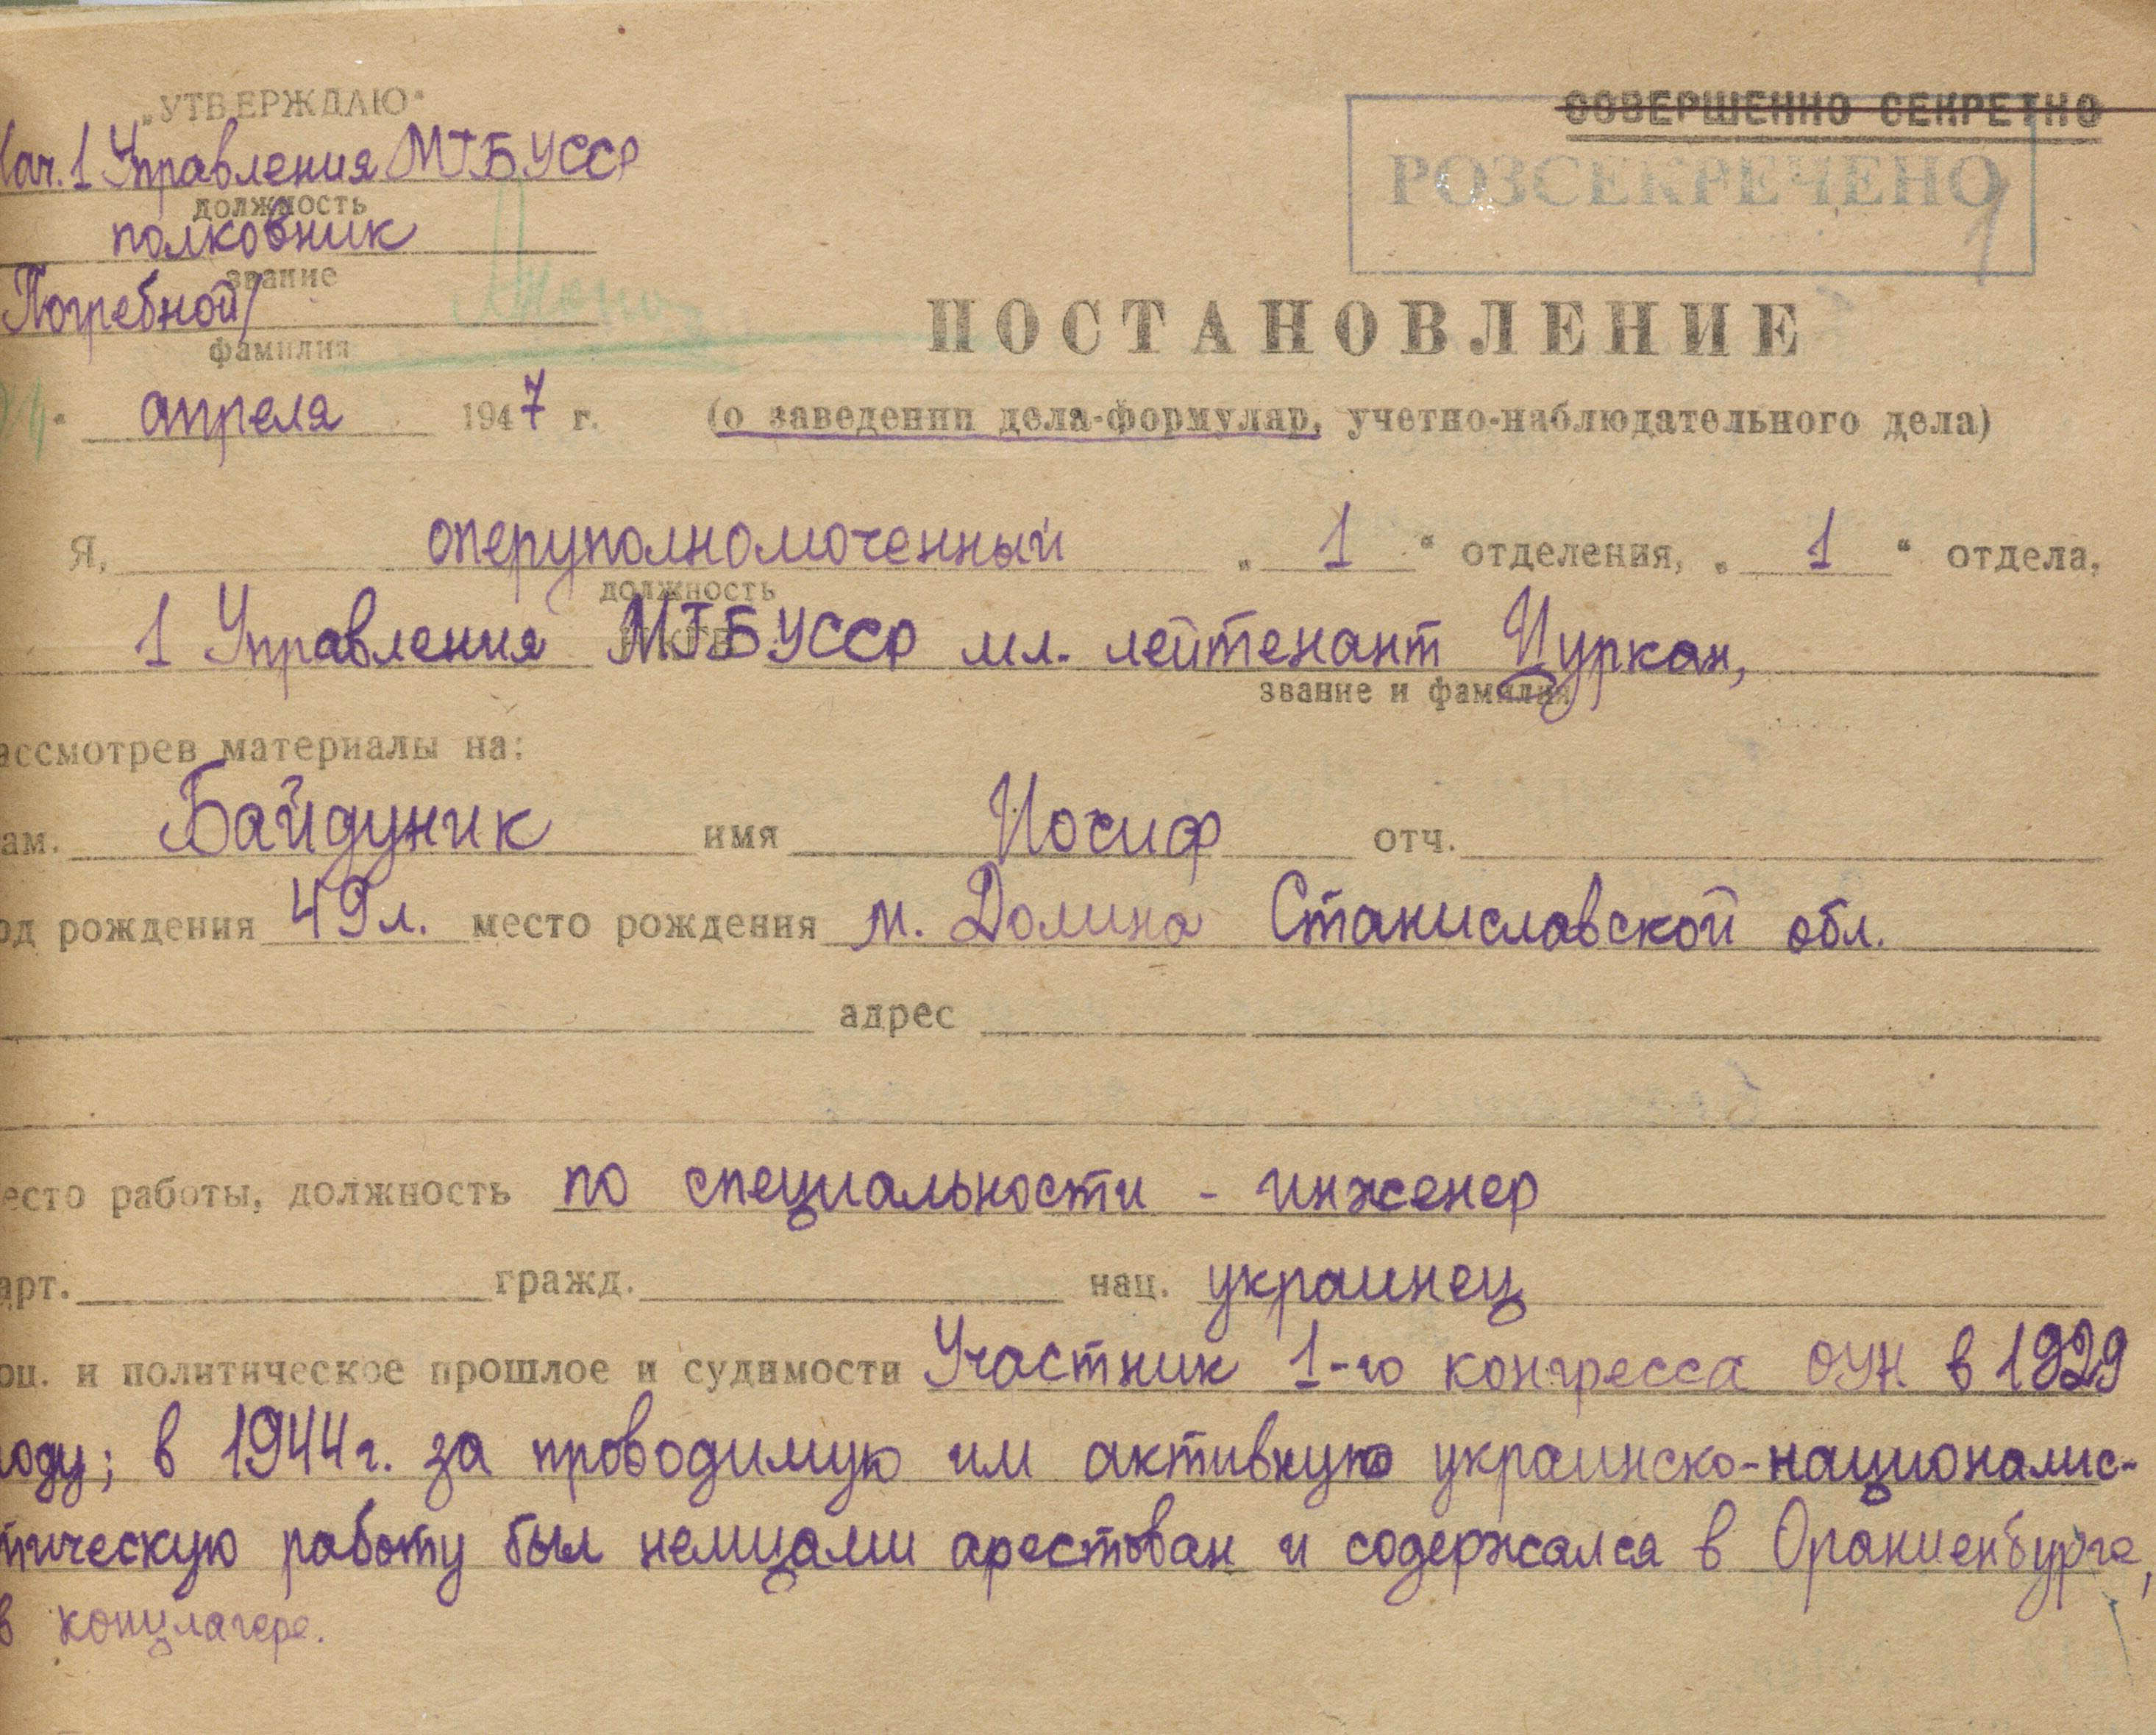 „УТВЕРЖДАЮ“
СОВЕРШЕННО СЕКРЕТНО
РОЗСЕКРЕЧЕНО
ач. 1 Управления МГБ УССР
должность
полковник
звание
Погребной/
фамилия
ПОСТАНОВЛЕНИЕ
апреля 1947 г. (о заведении дела-формуляр, учетно-наблюдательного дела)
Я, оперуполномоченный „ 1 “ отделения, „ 1 “ отдела,
должность
1 Управления МГБ УССР мл. лейтенант Цуркан,
звание и фамилия
ассмотрев материалы на:
ам. Байдуник имя Иосиф отч.
од рождения 49 л. место рождения м. Долина Станиславской обл.
адрес
есто работы, должность по специальности - инженер
арт. гражд. нац. украинец
оц. и политическое прошлое и судимости Участник 1-го конгресса ОУН в 1929
году; в 1944 г. за проводимую им активную украинско-националис-
тическую работу был немцами арестован и содержался в Ораниенбурге,
в концлагере.